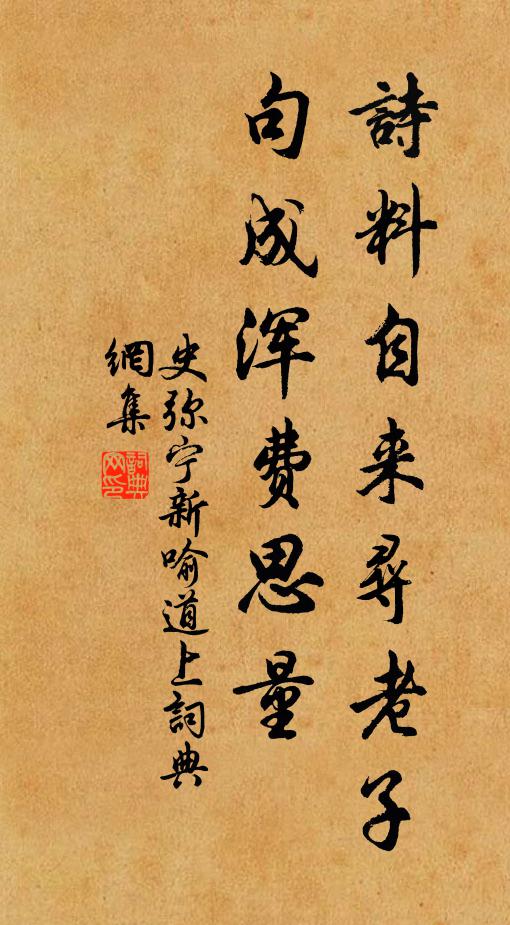 詩料自来尋老子
句成浑費思量
史弥宁新喻道上詞典
網集
詞典
网印